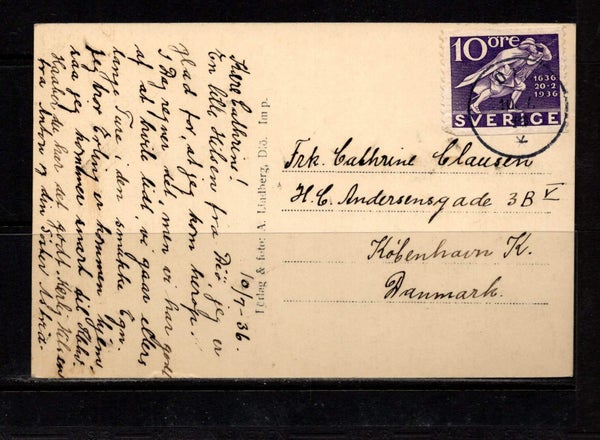 10 öre
1636
20-2
1936
SVERIGE
Frk. Cathrine Clausen
H.C. Andersensgade 3B V
København K.
Danmark.
Förlag & foto: A. Lindberg, Diö. Imp.
10/7-36.
Kære Cathrine!
En lille Hilsen fra Diö jeg er
Glad for, at jeg kom herop.
I Dag regner det, men vi har godt
af at hvile lidt, vi gaar ellers
lange Ture i den smukke Egn.
Jeg tror Erling er kommen hjem
saa jeg kommer snart til
Haaber du har det godt. Kærlig Hilsen
fra Anton og din